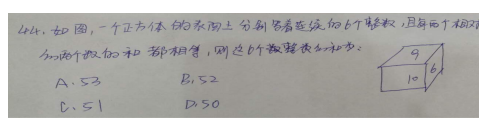 44、如图,一个正方体的表面上分别写着连续的6个整数,且每两个相对
的两个数的和都相等,则这6个整数的和为:
A.53 B.52
C.51 D.50
9
10
6